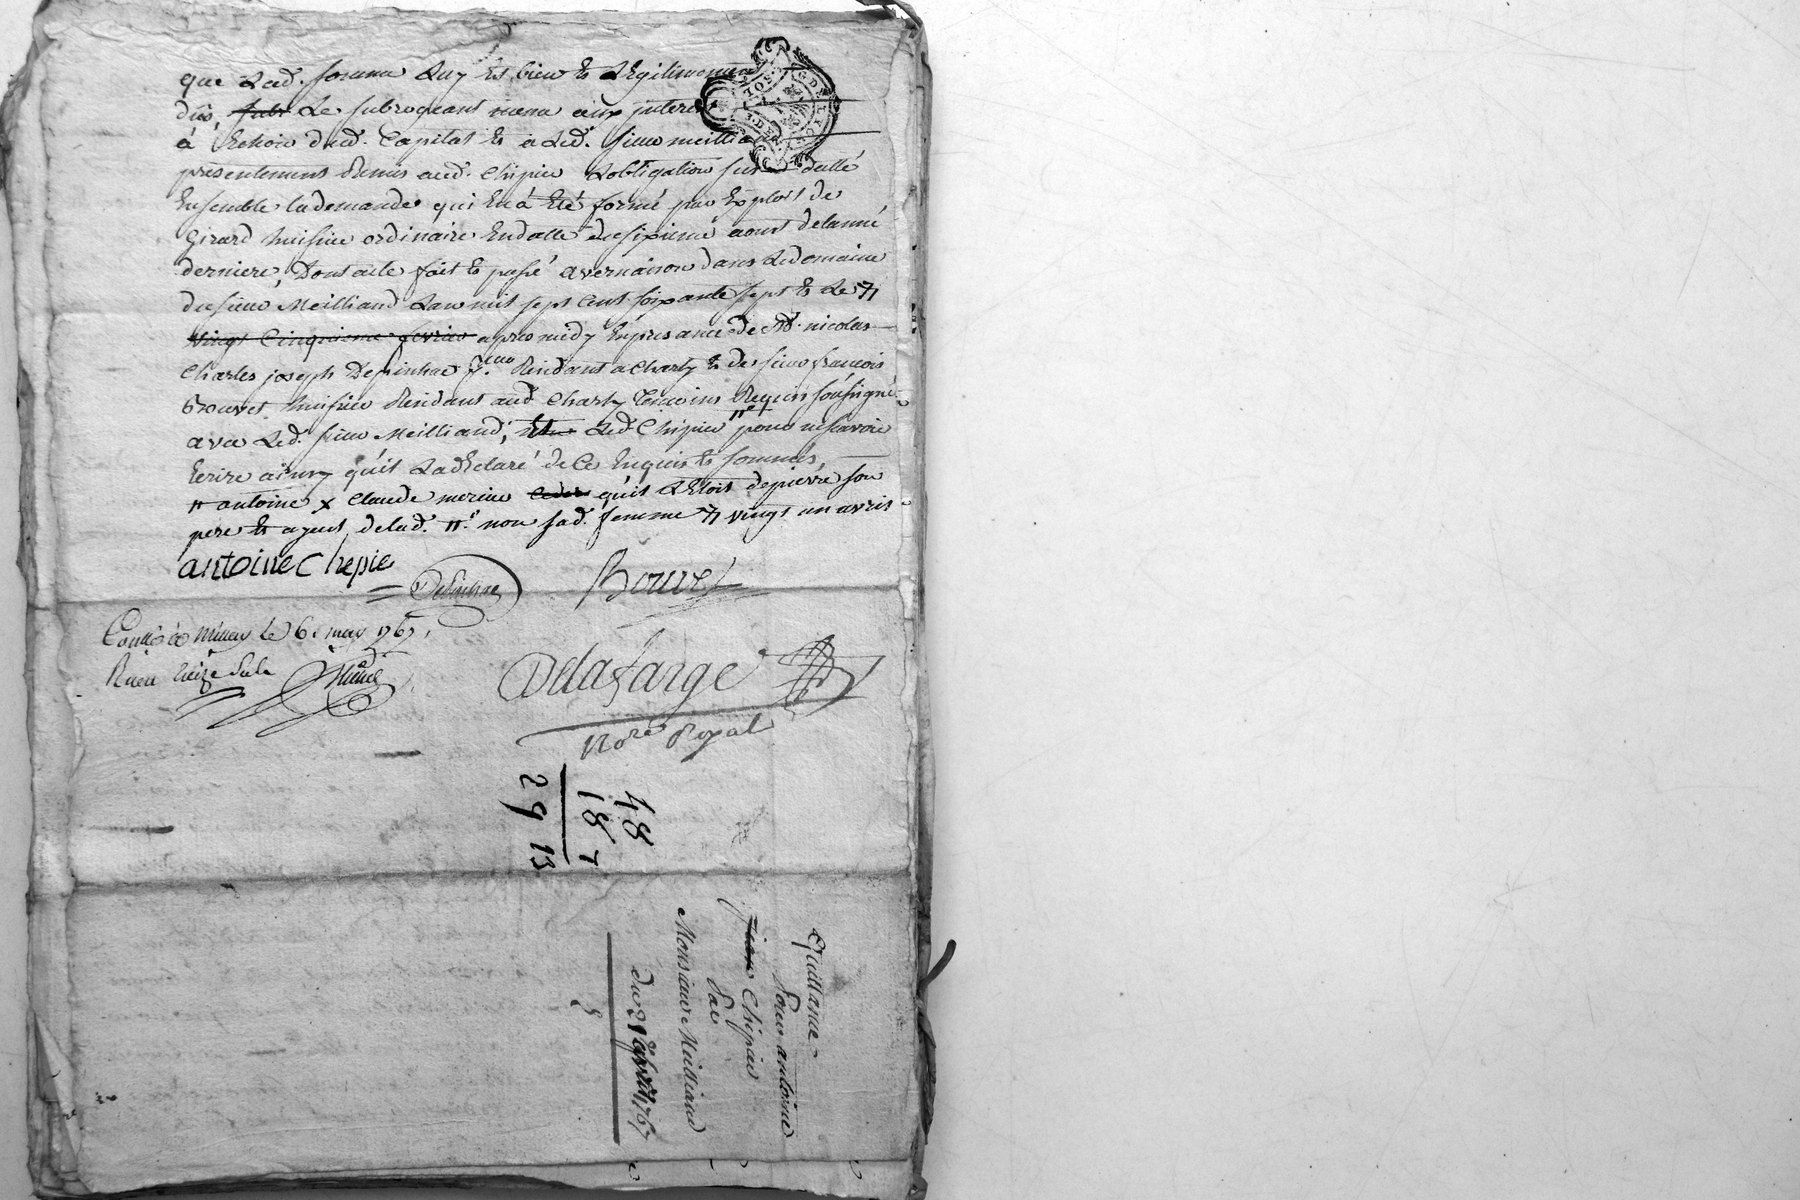 que Lad. somme Luy est bien et Legitimement
düe, subr Le subrogeant mema aux interes
à Echoir dud. Capital et a Led. sieur meilliand
presentement Remis aud. Chipier Lobligation sus datté
Ensemble lademande qui En à Eté formé par Exploit de
Girard huissier ordinaire Endatte du sixieme aoust delanné
derniere, Dont acte fait et passé a vernaison dans Le domaine
du sieur Meilliand Lan mil sept Cent soixante sept et Le
vingt Cinquieme fevrier apres midy En presance de Sr. nicolas
Charles joseph Despinhac Residant a Charly et de sieur francois
Bouvet huissier Residant aud. Charly temoins Requis soussigné
avec Led. sieur Meilliand, Led. Chipier pour ne scavoir
Ecrire ainsy qu'il La declaré de Ce Enquis et sommés
antoine x Claude qu'il Etoit de pierre son
pere et ayeul de lad. non sad. femme vingt un avril
antoine Chepie
Despinhac
Bouvet
Conllé a Millery Le 6. may 1767.
Receu treize sols
Delafarge
Nore Royal
48
18 7
29 13
Quittance
Pour antoine
Jean Chipier
Par
Monsieur Meilliand
Du 21 avril 1767